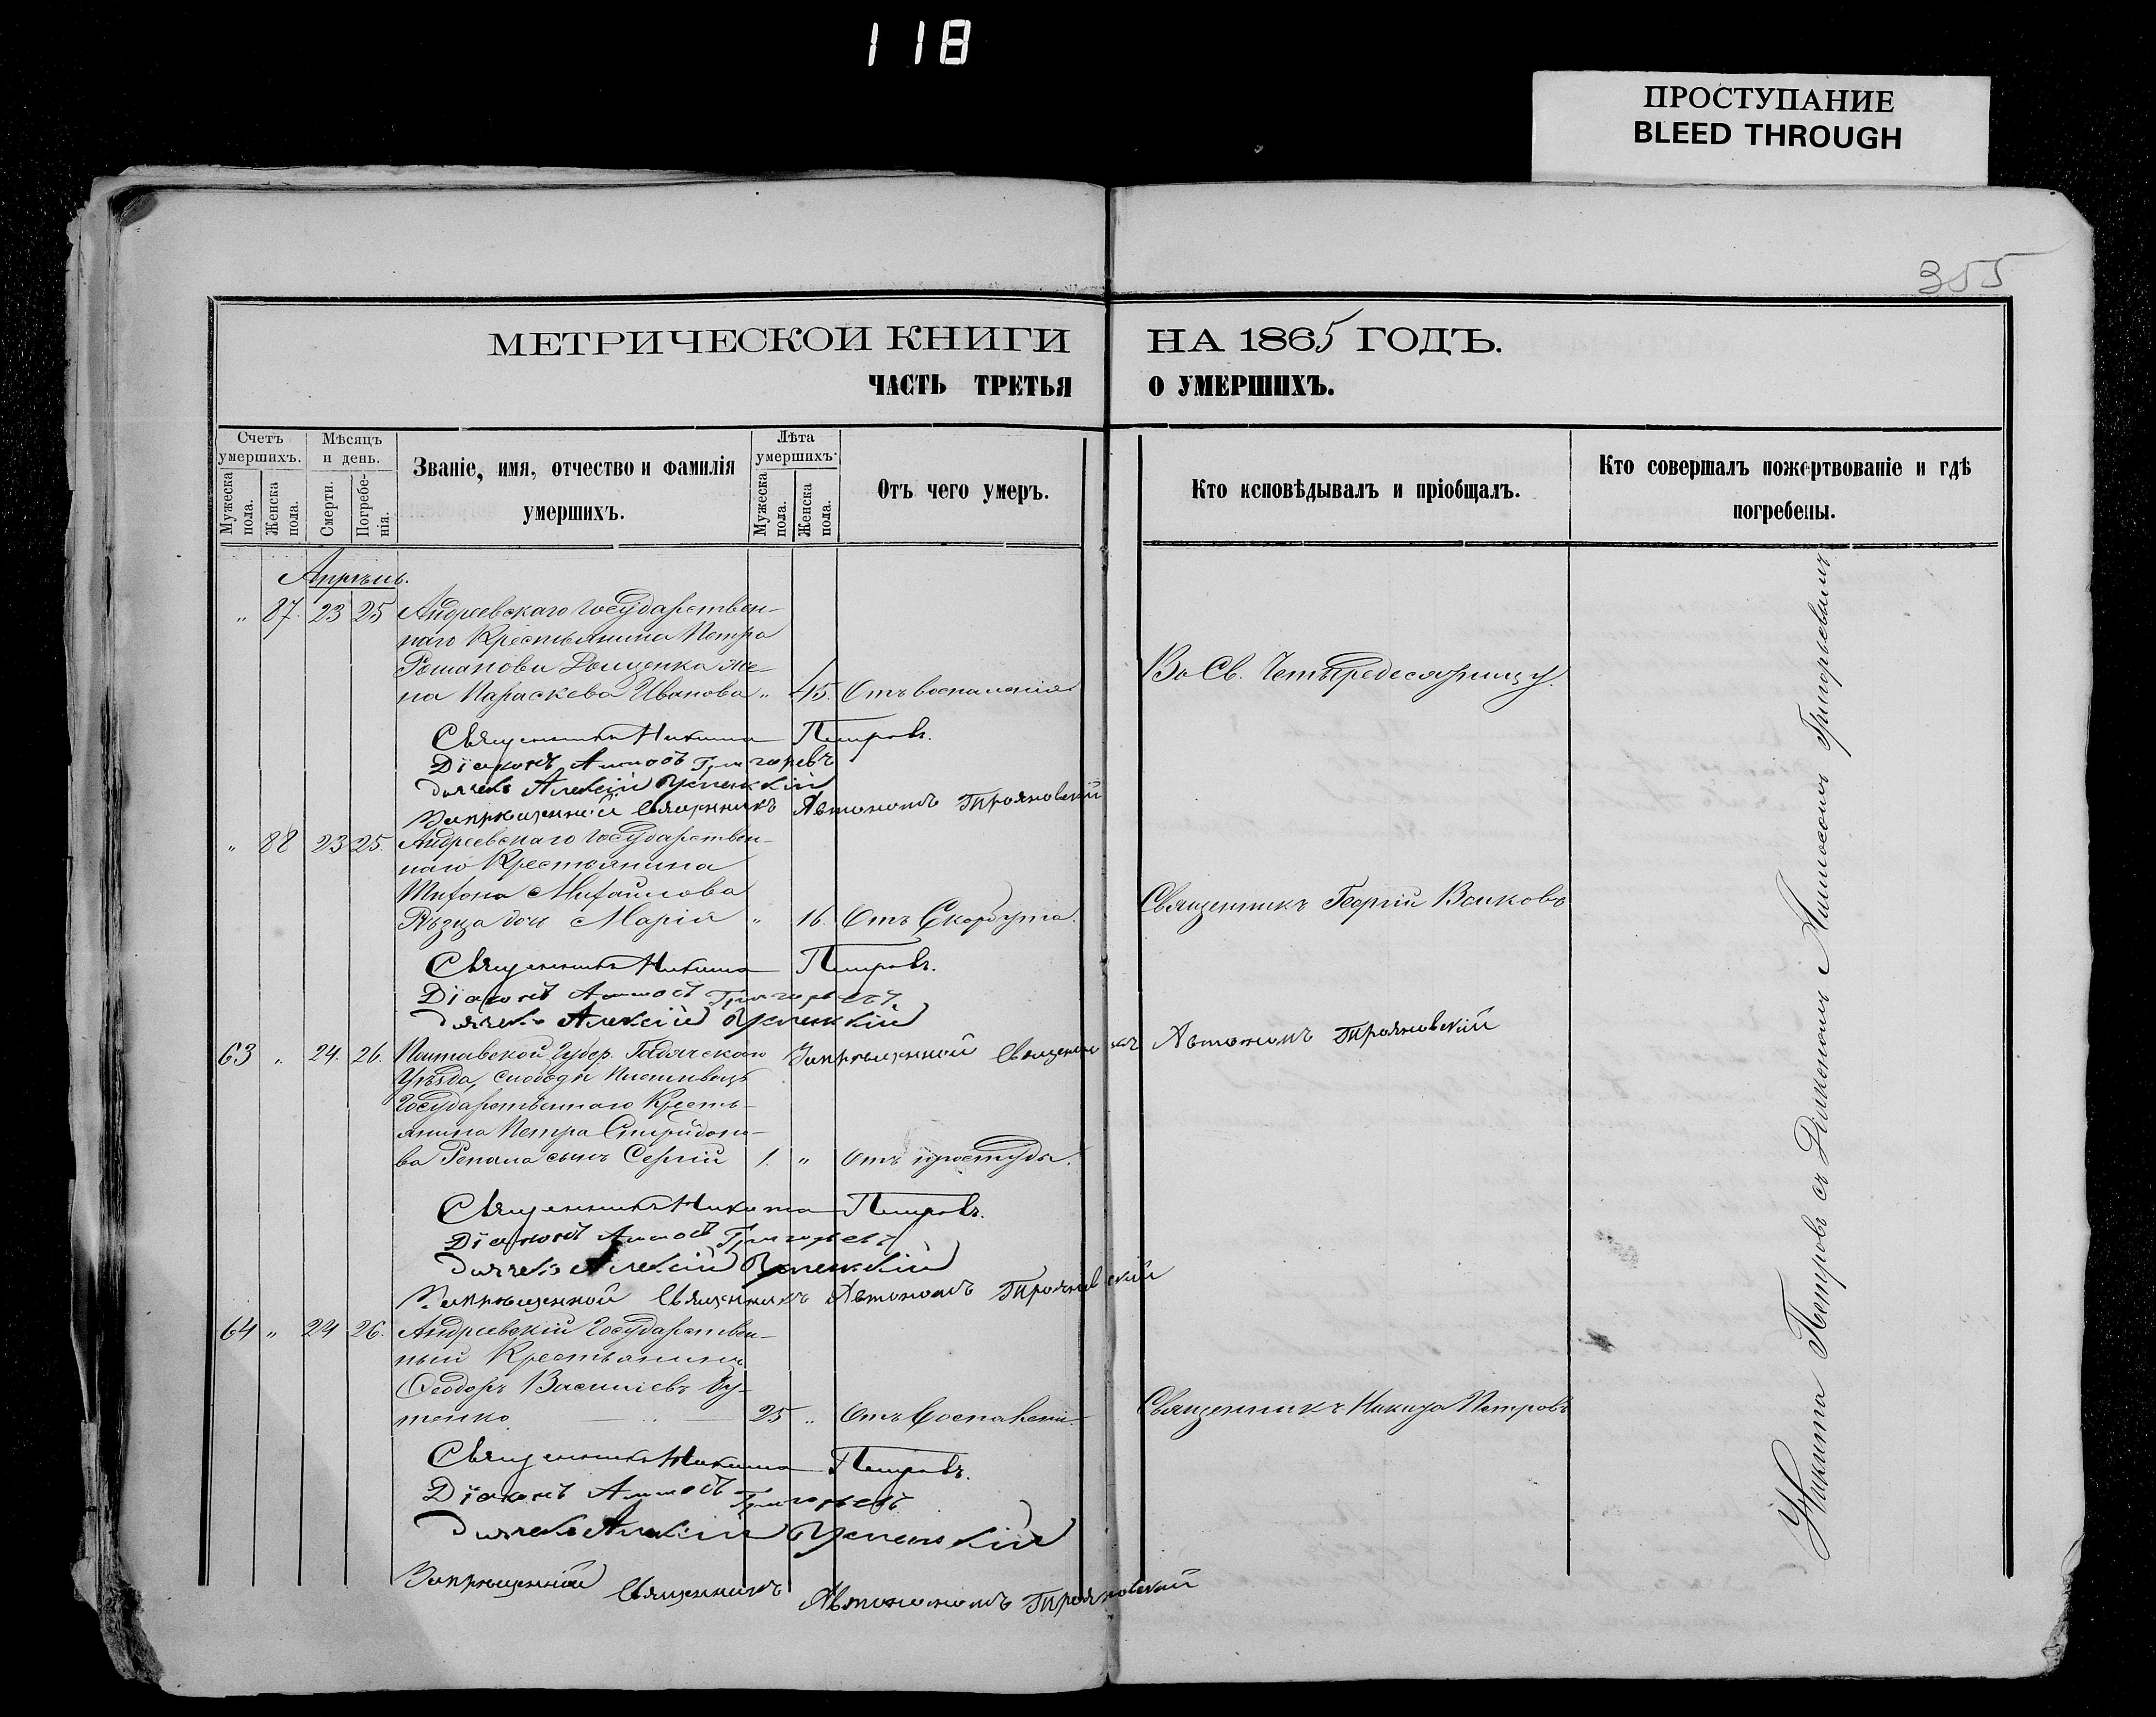 118
ПРОСТУПАНИЕ
BLEED THROUGH
355
МЕТРИЧЕСКОЙ КНИГИ НА 1865 ГОДЪ.
ЧАСТЬ ТРЕТЬЯ О УМЕРШИХЪ.
Счетъ умершихъ.
Мужеска пола.
Женска пола.
Мѣсяцъ и день.
Смерти.
Погребенія.
Званіе, имя, отчество и фамилія умершихъ.
Лѣта умершихъ.
Мужеска пола.
Женска пола.
Отъ чего умеръ.
Кто исповѣдывалъ и пріобщалъ.
Кто совершалъ пожертвованіе и гдѣ погребены.
Апрѣль.
„ 87. 23 25 Андреевскаго Государствен-
наго Крестьянина Петра
Романова же-
на Параскева Иванова „ 45. Отъ воспаленія
Во Св. Четыредесятницу.
Священникъ Никита Петровъ.
Діаконъ Аммосъ Григорьевъ
Дьячекъ Алексій Успенскій
Запрещенной Священникъ Автономъ Трояновскій
„ 88 23 25. Андреевскаго Государствен-
наго Крестьянина
Тихона Михайлова
Рѣзца дочь Марія „ 16. Отъ Скорбута.
Священникъ Георгій Волковъ
Священникъ Никита Петровъ.
Діаконъ Аммосъ Григорьевъ
Дьячекъ Алексій Успенскій
Запрещенной Священникъ Автономъ Трояновскій
63 „ 24. 26. Полтавской Губер. Гадячскаго
Уѣзда, слободы
Государственнаго Кресть-
янина Петра Спиридоно-
ва Репала сынъ Сергій 1. „ Отъ простуды.
Священникъ Никита Петровъ.
Діаконъ Аммосъ Григорьевъ
Дьячекъ Алексій Успенскій
Запрещенной Священникъ Автономъ Трояновскій
64 „ 24 26. Андреевскій Государствен-
ный Крестьянинъ
Ѳеодоръ Васильевъ Бу-
тенко 25 „ Отъ Воспаленія
Священникъ Никита Петровъ
Священникъ Никита Петровъ.
Діаконъ Аммосъ Григорьевъ
Дьячекъ Алексій Успенскій
Запрещенной Священникъ Автономъ Трояновскій
Никита Петровъ съ Діакономъ Аммосомъ Григорьевымъ